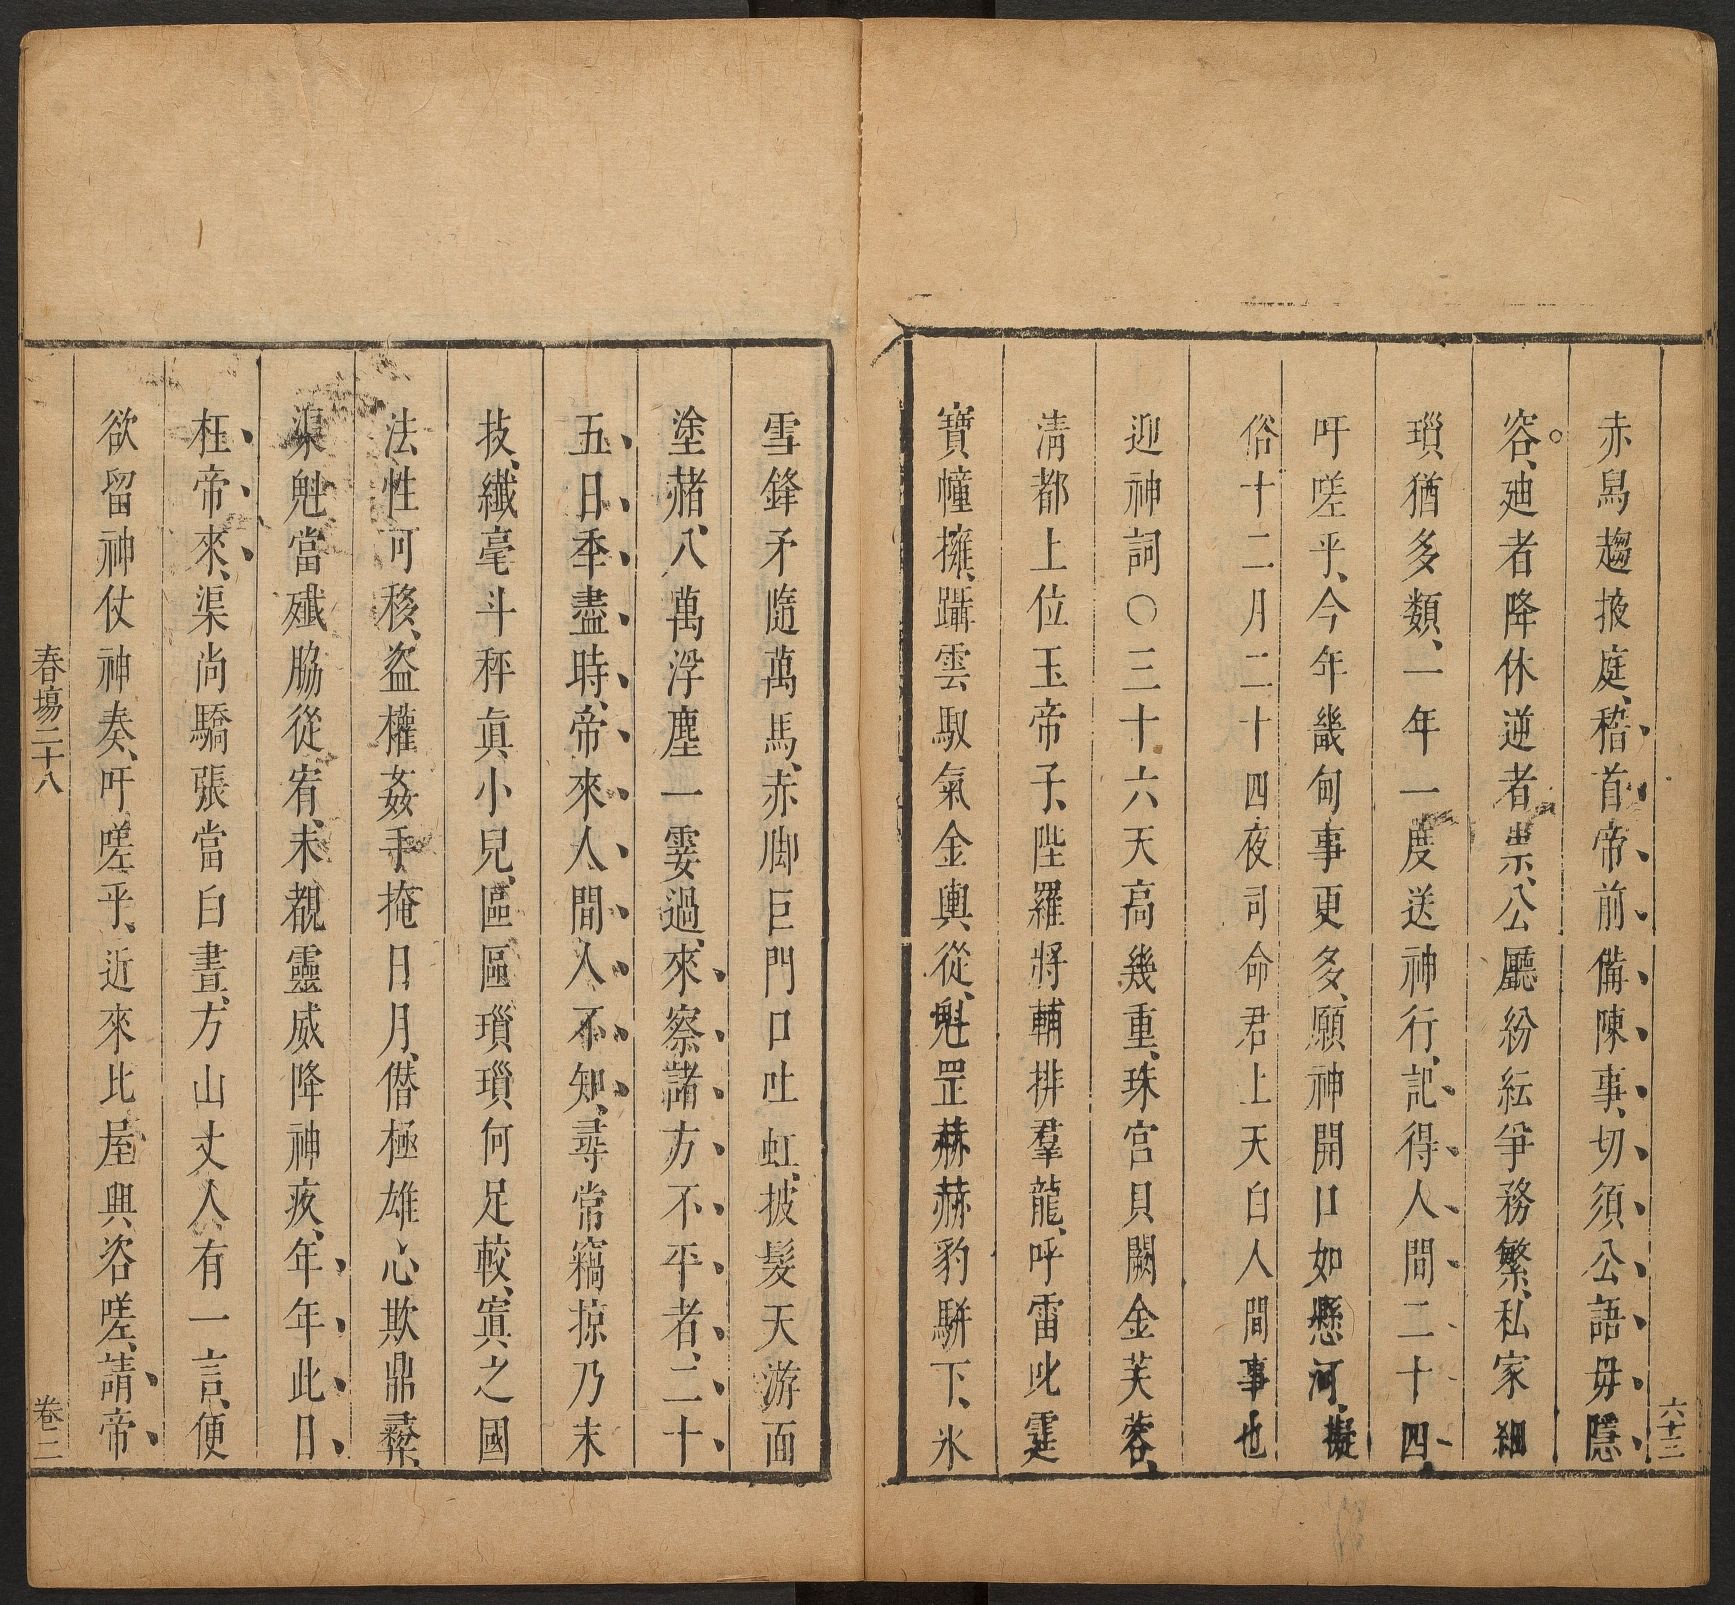 赤舄趨掖庭、稽首帝前備陳事、切須公語毋隱
容、廸者降休逆者祟、公廳紛紜爭務繁、私家細
瑣猶多類、一年一度送神行、記得人間二十四、
吁嗟乎、今年畿甸事更多、願神開口如懸河、擬
俗十二月二十四夜司命君上天白人間事也
迎神詞○三十六天高幾重、珠宮貝闕金芙蓉、
清都上位玉帝子、陛羅將輔排羣龍、呼雷叱霆
寶幢擁、躡雲馭氣金輿從、魁罡赫赫豹駢下、氷
六十三
雪鋒矛隨萬馬、赤脚巨門口吐虹、披髮天游面
塗赭、八萬浮塵一霎過、來察諸方不平者、二十
五日季盡時、帝來人間人不知、尋常竊掠乃末
技、纖毫斗秤眞小兒、區區瑣瑣何足較、寘之國
法性可移、盜權姦手掩日月、僭極雄心欺鼎彞、
渠魁當殱脇從宥、未覩靈威降神疚、年年此日
枉帝來、渠尚驕張當白晝、方山丈人有一言、便
欲留神仗神奏、吁嗟乎、近來比屋興咨嗟、請帝
春場二十八
卷二